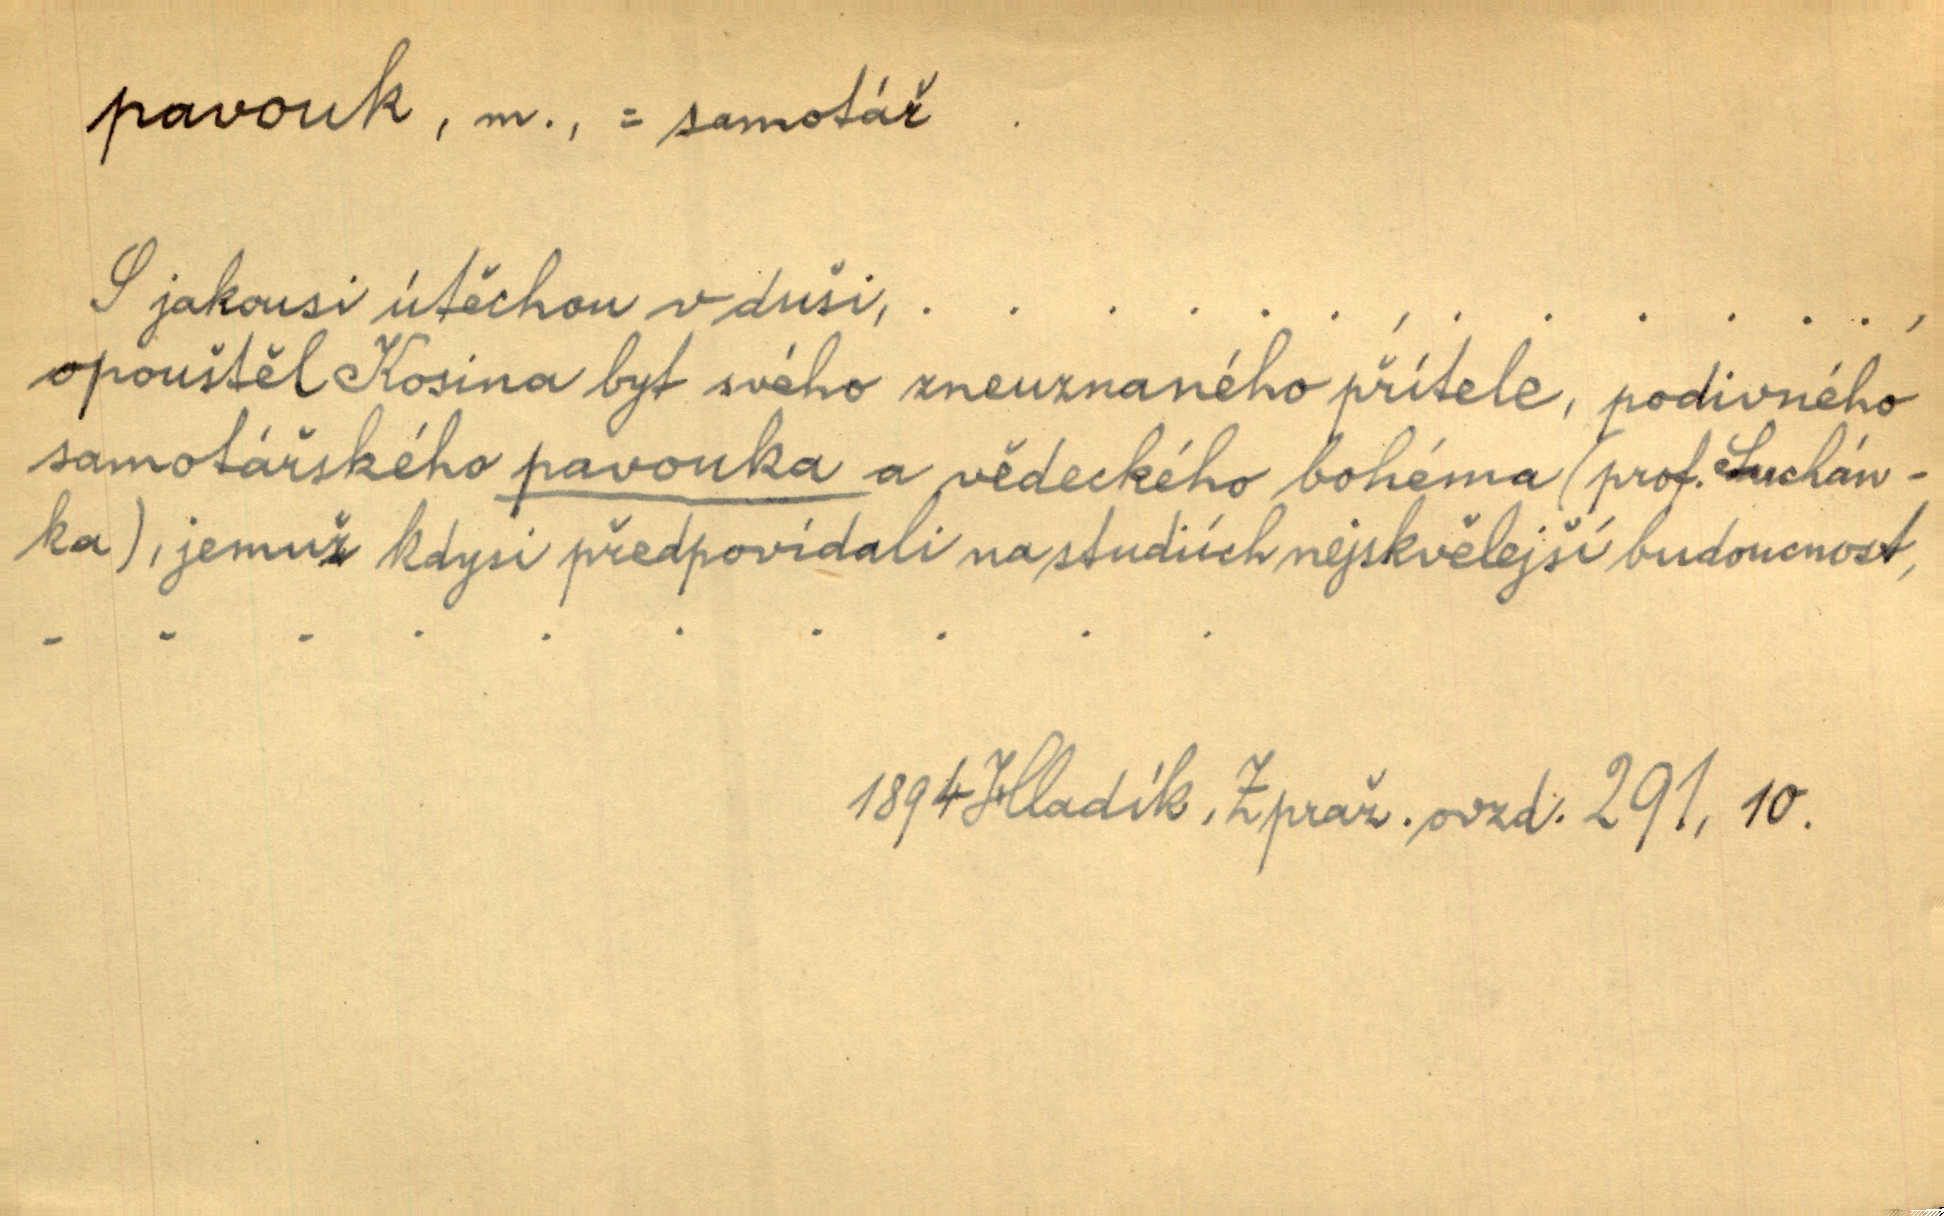 pavouk, m., = samotář .
S jakousi útěchou v duši, . . . . . . , . . . . . . . ,
opouštěl Kosina byt svého zneuznaného přítele, podivného
samotářského pavouka a vědeckého bohéma (prof. Suchán-
ka), jemuž kdysi předpovídali na studiích nejskvělejší budoucnost,
- - - . . . . . . .
1894 Hladík, Z praž. ovzd. 291, 10.